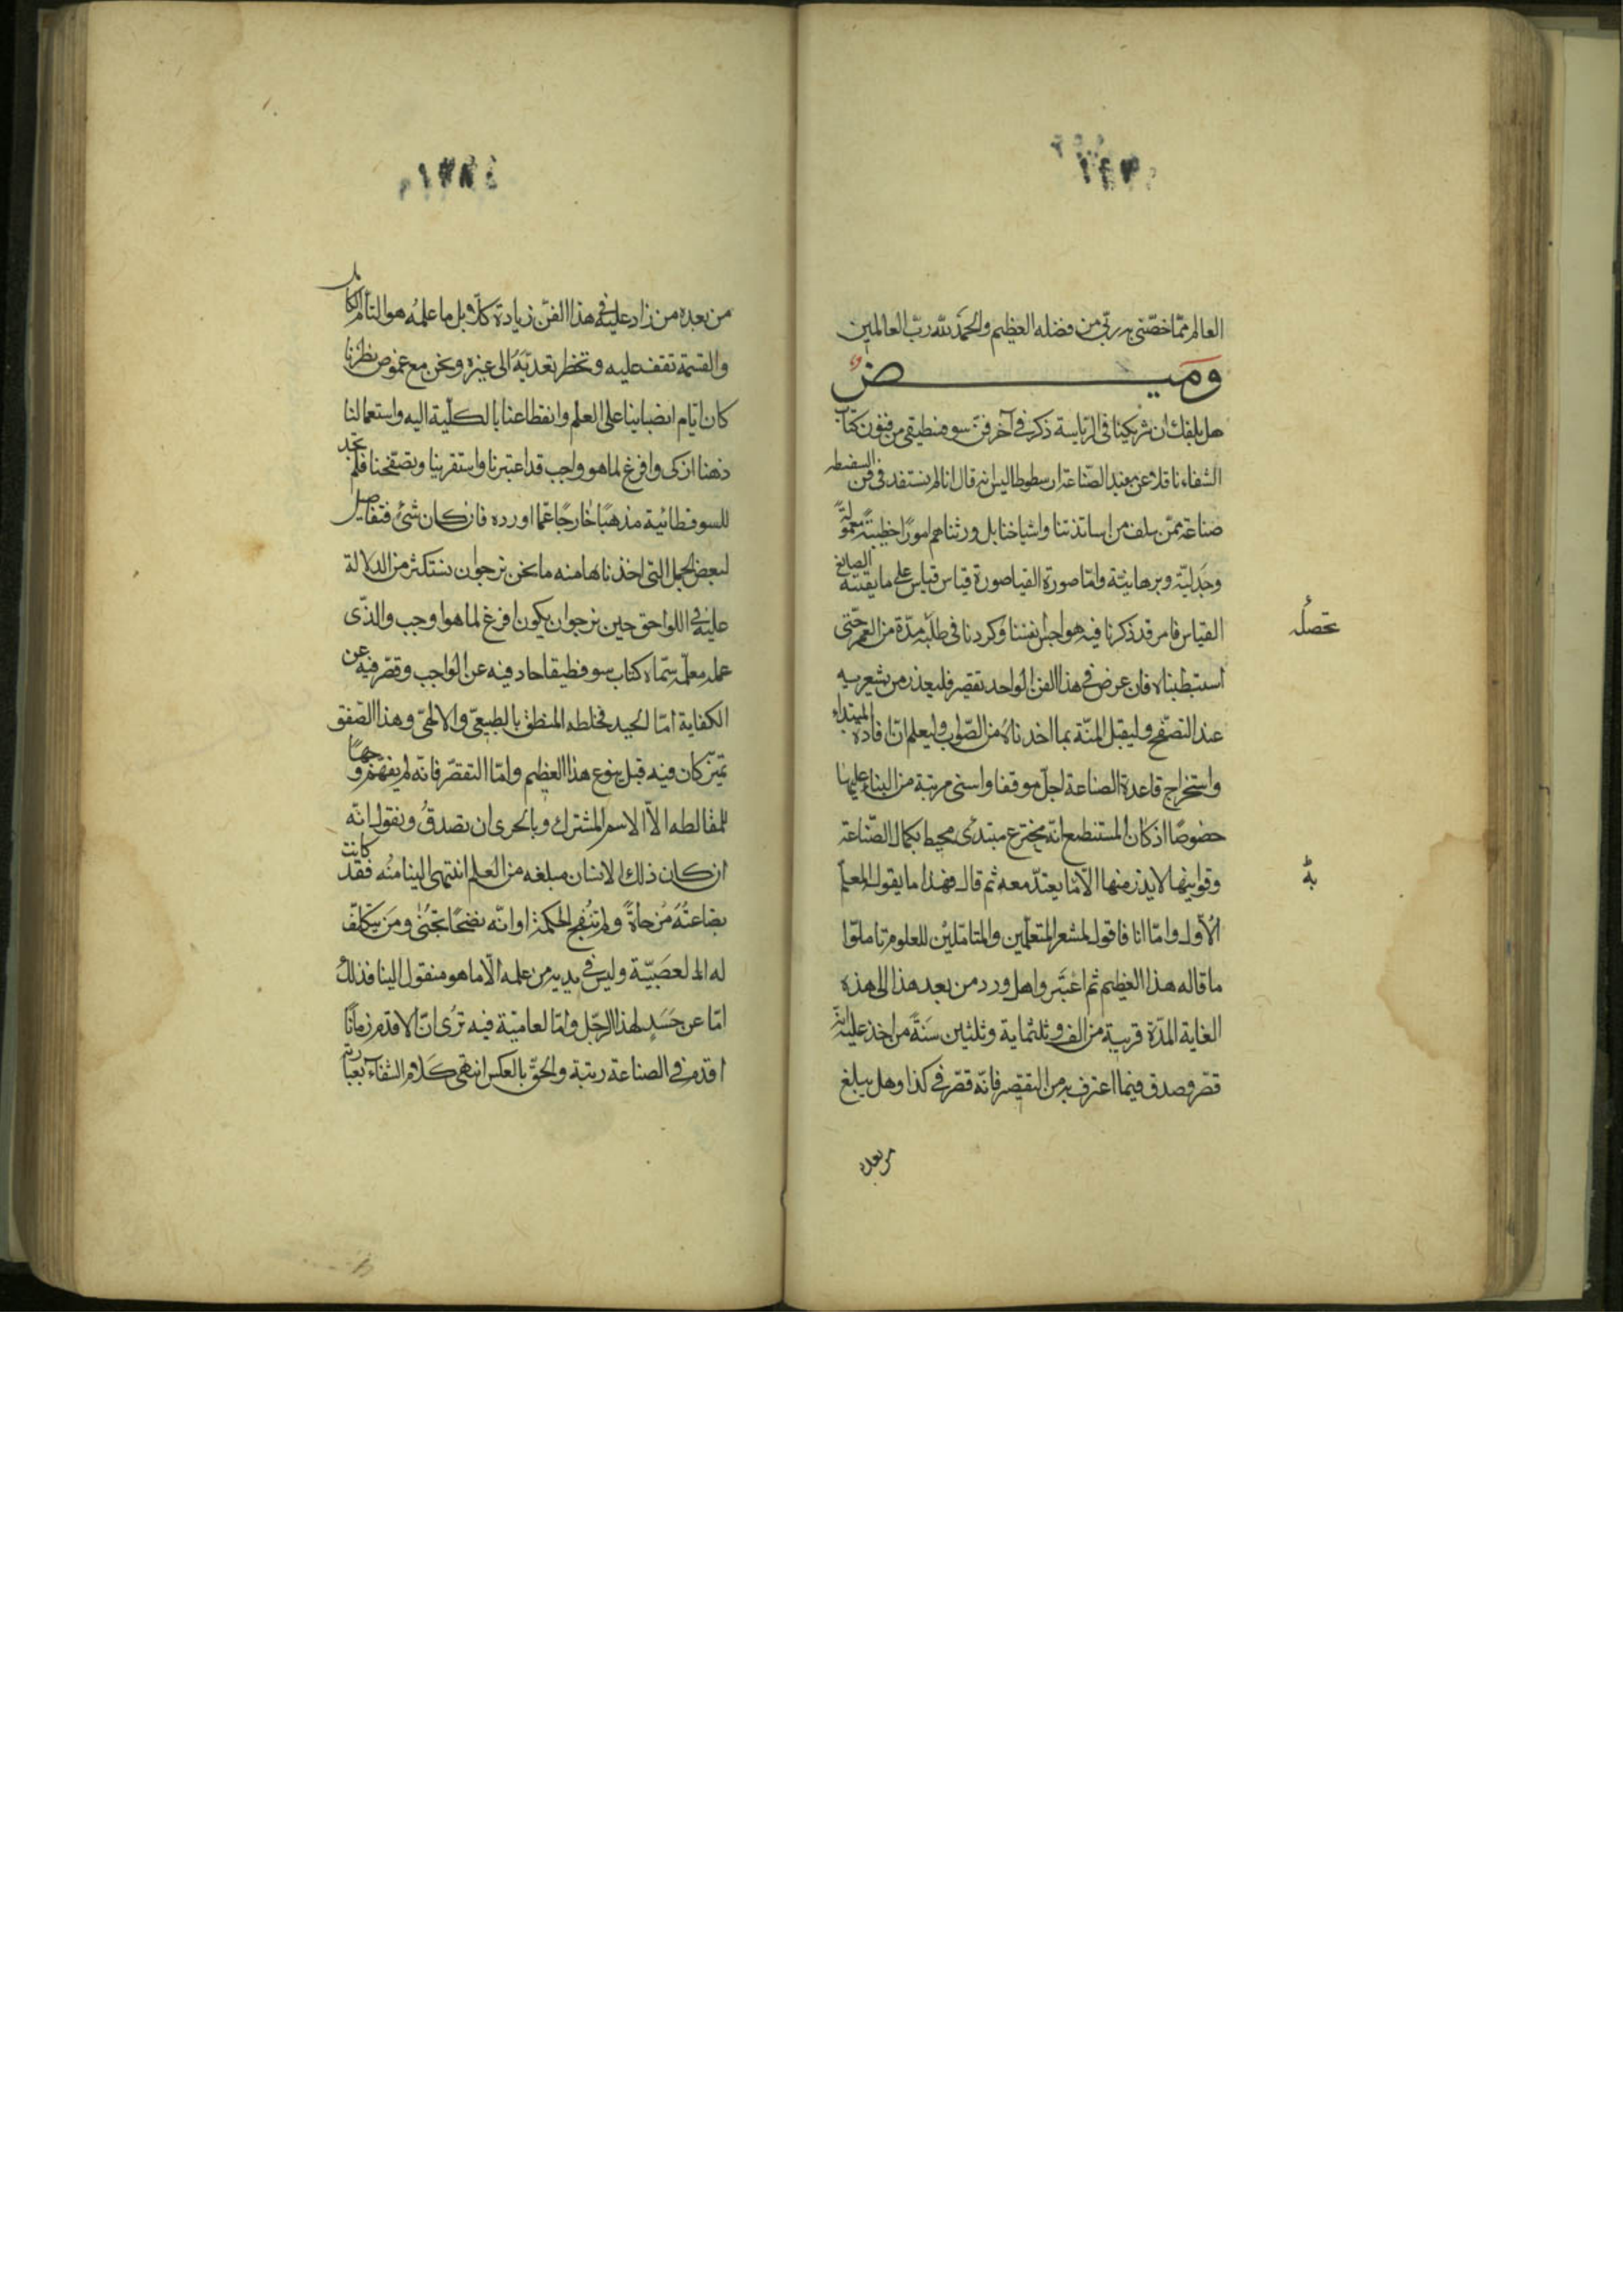 العالم ممّا خصّنى به ربّى من فضله العظيم والحمد لله ربّ العالمين
وميض
هل بلغك ان شريكنا فى الرّياسة ذكر فى آخر فنّ سوفسطيقى من فنون كتاب
الشفاء ناقلا عن مفيد الصّناعة ارسطوطاليس انه قال انا لم نستفد فى فن السفسطه
صناعة ممّن سلف من اساتذتنا واشياخنا بل ورثنا هم امورًا خطبيّة معمولة
وجدليّة وبرهانيّة وامّا صورة القياس وصورة قياس قياس على ما يقتنيه الصانع
القياس فامر قد ذكرنا فيه هواجس نفسنا وكردنا فى طلبه مدّة من العمر حتّى
تحصل
استنبطناه فان عرض فى هذا الفن الواحد تقصير فليعذر من يشعر به
عند التصفّح وليقبل المنّة بما اخدناه من الصّواب وليعلم انّ افادة المبتداء
واستخراج قاعدة الصناعة اجلّ موقفا واسنى مرتبة من البناء عليها
خصوصًا اذ كان المستنطع انّه مخترع مبتدى محيط بكمال الصّناعة
وقوانينها لا يذر منها الّا ما يعتدّ معه ثم قال فهذا ما يقول المعلّم
به
الأول وامّا انا فاقول لمشعر المتعلّمين والمتاملين للعلوم تاملوا
ما قاله هذا العظيم ثم اعتبروا هل ورد من بعد هذا الى هذه
الغاية المدّة قريبة من الف وثلثماية وثلثين سنة من اخذ عليه انه
قصر وصدق فيما اعترف به من التقصير فانّه قصّر فى كذا وهل يبلغ
من بعده
من بعده من زاد عليه فى هذا الفنّ زيادة كلّا بل ما علمه هو التام الكامل
والقسمة تقف عليه وتحظر تعدّيه الى غيره ونحن مع غموض نظرنا
كان ايّام انصبابنا على العلم وانقطاعنا بالكليّة اليه واستعمالنا
ذهنا اذكى وافرغ لما هو واجب قد اعتبرنا واستقرينا وتصفّحنا فلم نجد
للسوفسطائية مذهبًا خارجًا عمّا اورده فان كان شئ فتفاصيل
لبعض الجمل التى اخذناها منه ما نحن نرجو ان نستكثر من الدلالة
عليه فى اللواحق حين نرجو ان يكون افرغ لما هو اوجب والذّى
عمله معلّمه سمّاه كتاب سوفسطيقا حاد فيه عن الواجب وقصّر فيه عن
الكفاية امّا الحيد فخلطه المنطق بالطبيعى والالهىّ وهذا الضعف
تميّز كان فيه قبل نبوغ هذا العظيم وامّا التقصّر فانّه لم يفهم وجها
للمغالطه الّا الاسم المشترك وبالحرى ان نصدق ونقول انّه
ان كان ذلك الانسان مبلغه من العلم انتهى الينا منه فقد كانت
بضاعته مزجاة ولم تنضج الحكمة اوانه نضجًا تجنى ومن يتكلّف
له العصبيّة وليس فى يديه من علمه الّا ما هو منقول الينا فذلك
امّا عن حسد لهذا الرّجل وامّا لعاميّة فيه ترى انّ الاقدم زمانًا
اقدم فى الصناعة رتبة والحقّ بالعكس انتهى كلام الشفاء بعبارته